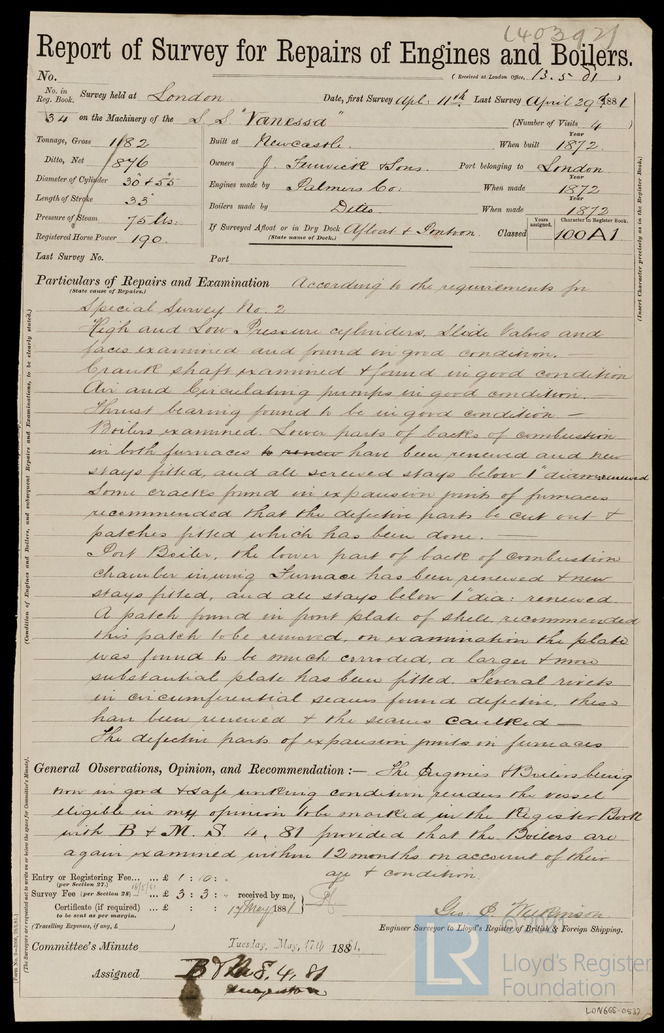 (40392)
Report of Survey for Repairs of Engines and Boilers.
No. (Received at London Office, 13.5.81)
No. in Reg. Book. Survey held at London Date, first Survey Apl: 11th Last Survey April 29th 1881
34 on the Machinery of the S.S. "Vanessa" (Number of Visits 4)
Tonnage, Gross 1182 Built at Newcastle. When built Year 1872.
Ditto, Net 876 Owners J. Fenwick & Sons. Port belonging to London
Diameter of Cylinder 30 & 55 Engines made by Palmers Co: When made Year 1872
Length of Stroke 33 Boilers made by Ditto. When made Year 1872
Pressure of Steam 75 lbs. If Surveyed Afloat or in Dry Dock Afloat & Pontoon. Classed Years assigned. Character in Register Book. 100A1
(State name of Dock.)
Registered Horse Power 190.
Last Survey No. Port
Particulars of Repairs and Examination According to the requirements for
(State cause of Repairs.)
Special Survey No. 2
High and Low Pressure cylinders, Slide Valves and
faces examined and found in good condition. —
Crank shaft examined & found in good condition
Air and Circulating pumps in good condition. —
Thrust bearing found to be in good condition —
Boilers examined. Lower parts of backs of combustion
in both furnaces to renew have been renewed and new
stays fitted, and all screwed stays below 1" diam renewed
Some cracks found in expansion joints of furnaces
recommended that the defective parts be cut out &
patches fitted which has been done. —
Port Boiler, the lower part of back of combustion
chamber in wing Furnace has been renewed & new
stays fitted, and all stays below 1" dia: renewed.
A patch found in front plate of shell, recommended
this patch to be removed, on examination the plate
was found to be much corroded, a larger & more
substantial plate has been fitted. Several rivets
in circumferential seams found defective, these
have been renewed & the seams caulked —
The defective parts of expansion joints in furnaces
General Observations, Opinion, and Recommendation :— The Engines & Boilers being
now in good & safe working condition renders the vessel
eligible in my opinion to be marked in the Register Book
with B & M. S 4, 81 provided that the Boilers are
again examined within 12 months on account of their
age & condition.
Entry or Registering Fee... ... £ 1 : 10 : "
(per Section 27.)
Survey Fee (per Section 28) ... £ 3 : 3 : " received by me,
Certificate (if required) ... £ : : 17 May 1881
to be sent as per margin.
(Travelling Expenses, if any, £ )
Geo. E. Wilkinson
Engineer Surveyor to Lloyd's Register of British & Foreign Shipping.
Committee's Minute Tuesday, May, 17th 1881.
Assigned B & M S. 4, 81
(Insert Character precisely as in the Register Book.)
(Condition of Engines and Boilers, and subsequent Repairs and Examinations, to be clearly stated.)
(The Surveyors are requested not to write on or below the space for Committee's Minute.)
© 2021
LR
Lloyd's Register
Foundation
LON666-0532